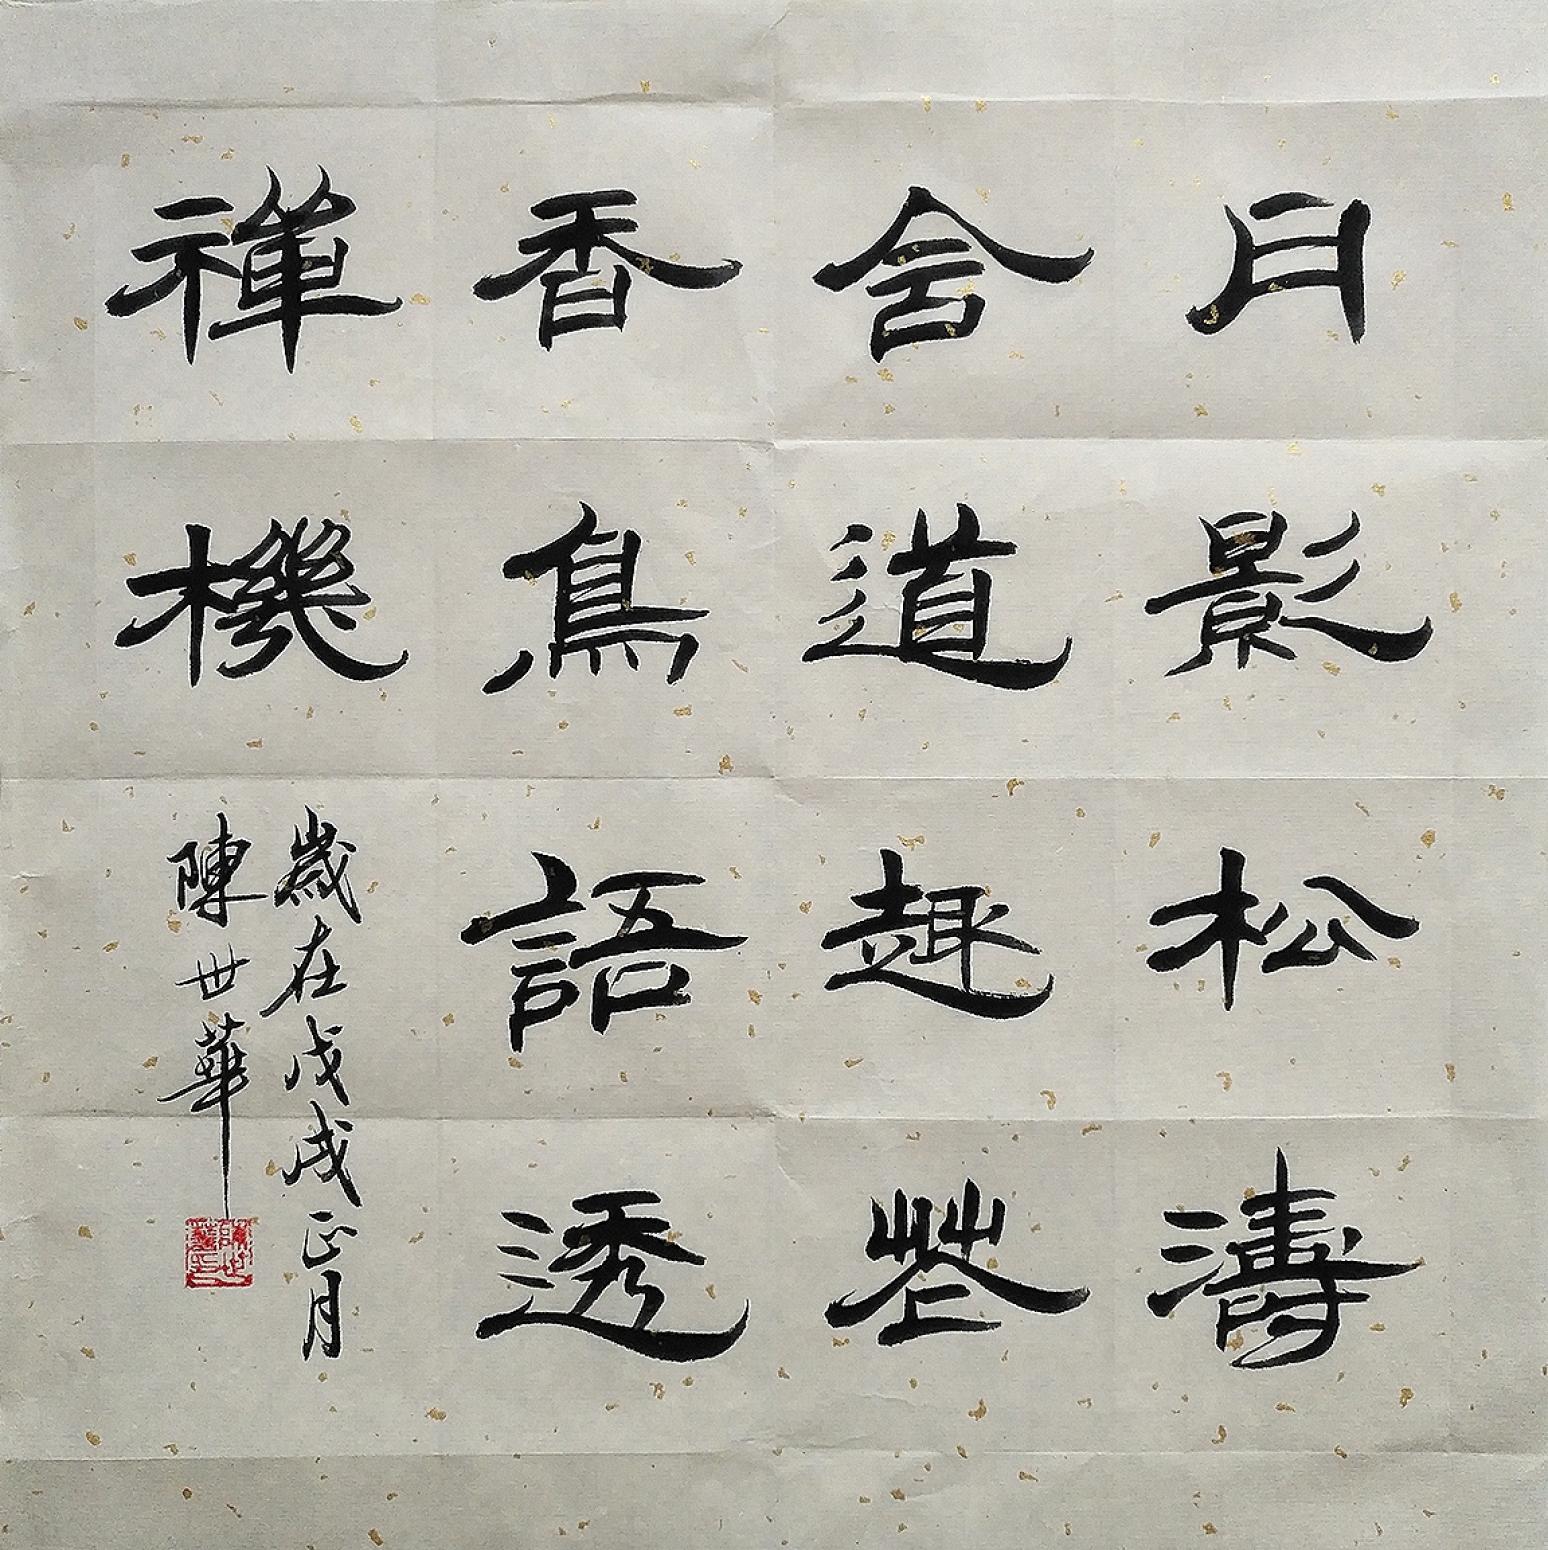 月影松濤
含道趣花
香鳥語透
禪機
歲在戊戌正月
陳世華
陳世華印